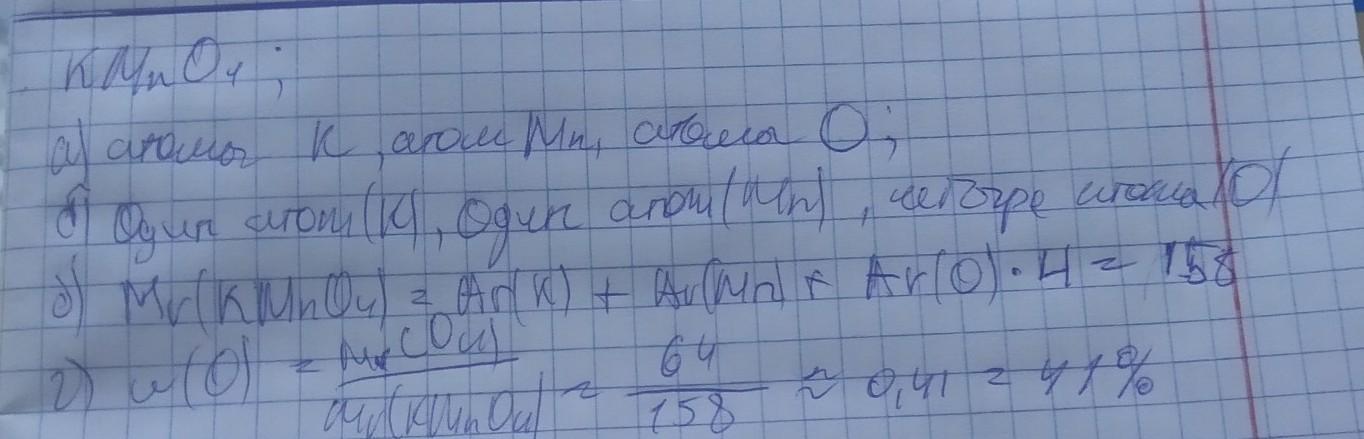 KMnO₄;
а) атомы K, атом Mn, атома O;
б) Один атом (K), Один атом (Mn), четыре атома (O)
в) Mr(KMnO₄) = Ar(K) + Ar(Mn) + Ar(O)·4 = 158
г) w(O) = Mr(O₄) / Mr(KMnO₄) = 64 / 158 ≈ 0,41 = 41%